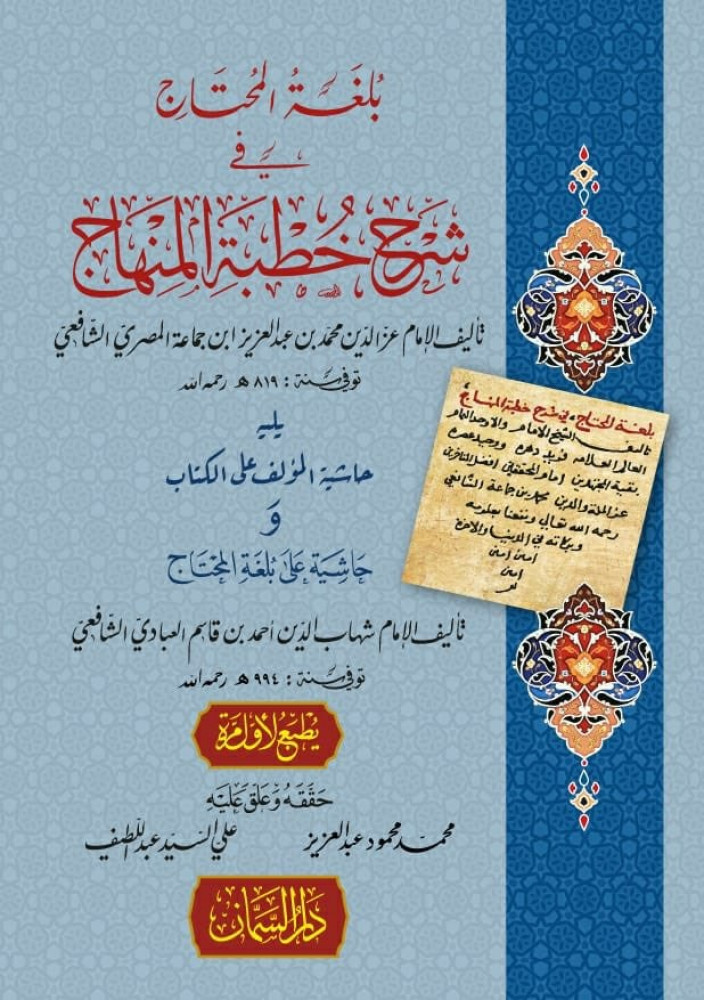 بُلغَةُ المُحتَاجِ
في
شَرحِ خُطبَةِ المِنهَاجِ
تأليف الإمام عزّ الدّين محمّد بن عبد العزيز ابن جماعة المصريّ الشّافعيّ
توفي سنة : ٨١٩ هـ رحمه الله
يليه
حاشية المؤلف على الكتاب
وَ
حَاشِيَة عَلَى بُلغَةِ المُحْتَاج
تأليف الإمام شهاب الدّين أحمد بن قاسم العباديّ الشّافعيّ
توفي سنة : ٩٩٤ هـ رحمه الله
يطبع لأول مرة
حَقّقَهُ وَعَلّقَ عَلَيْهِ
محمّد محمود عبد العزيز
علي السّيّد عبد اللطيف
دَارُ السَّمَّان
بلغة المحتاج في شرح خطبة المنهاج
تاليف الشيخ الامام والاوحد الهمام
العالم العلامه فريد دهره ووحيد عصره
بقية المجتهدين امام المحققين افضل المتاخرين
عز الملة والدين محمد بن جماعة الشافعي
رحمه الله تعالى ونفعنا بعلومه
وبركاته في الدنيا والاخرة
امين امين
امين